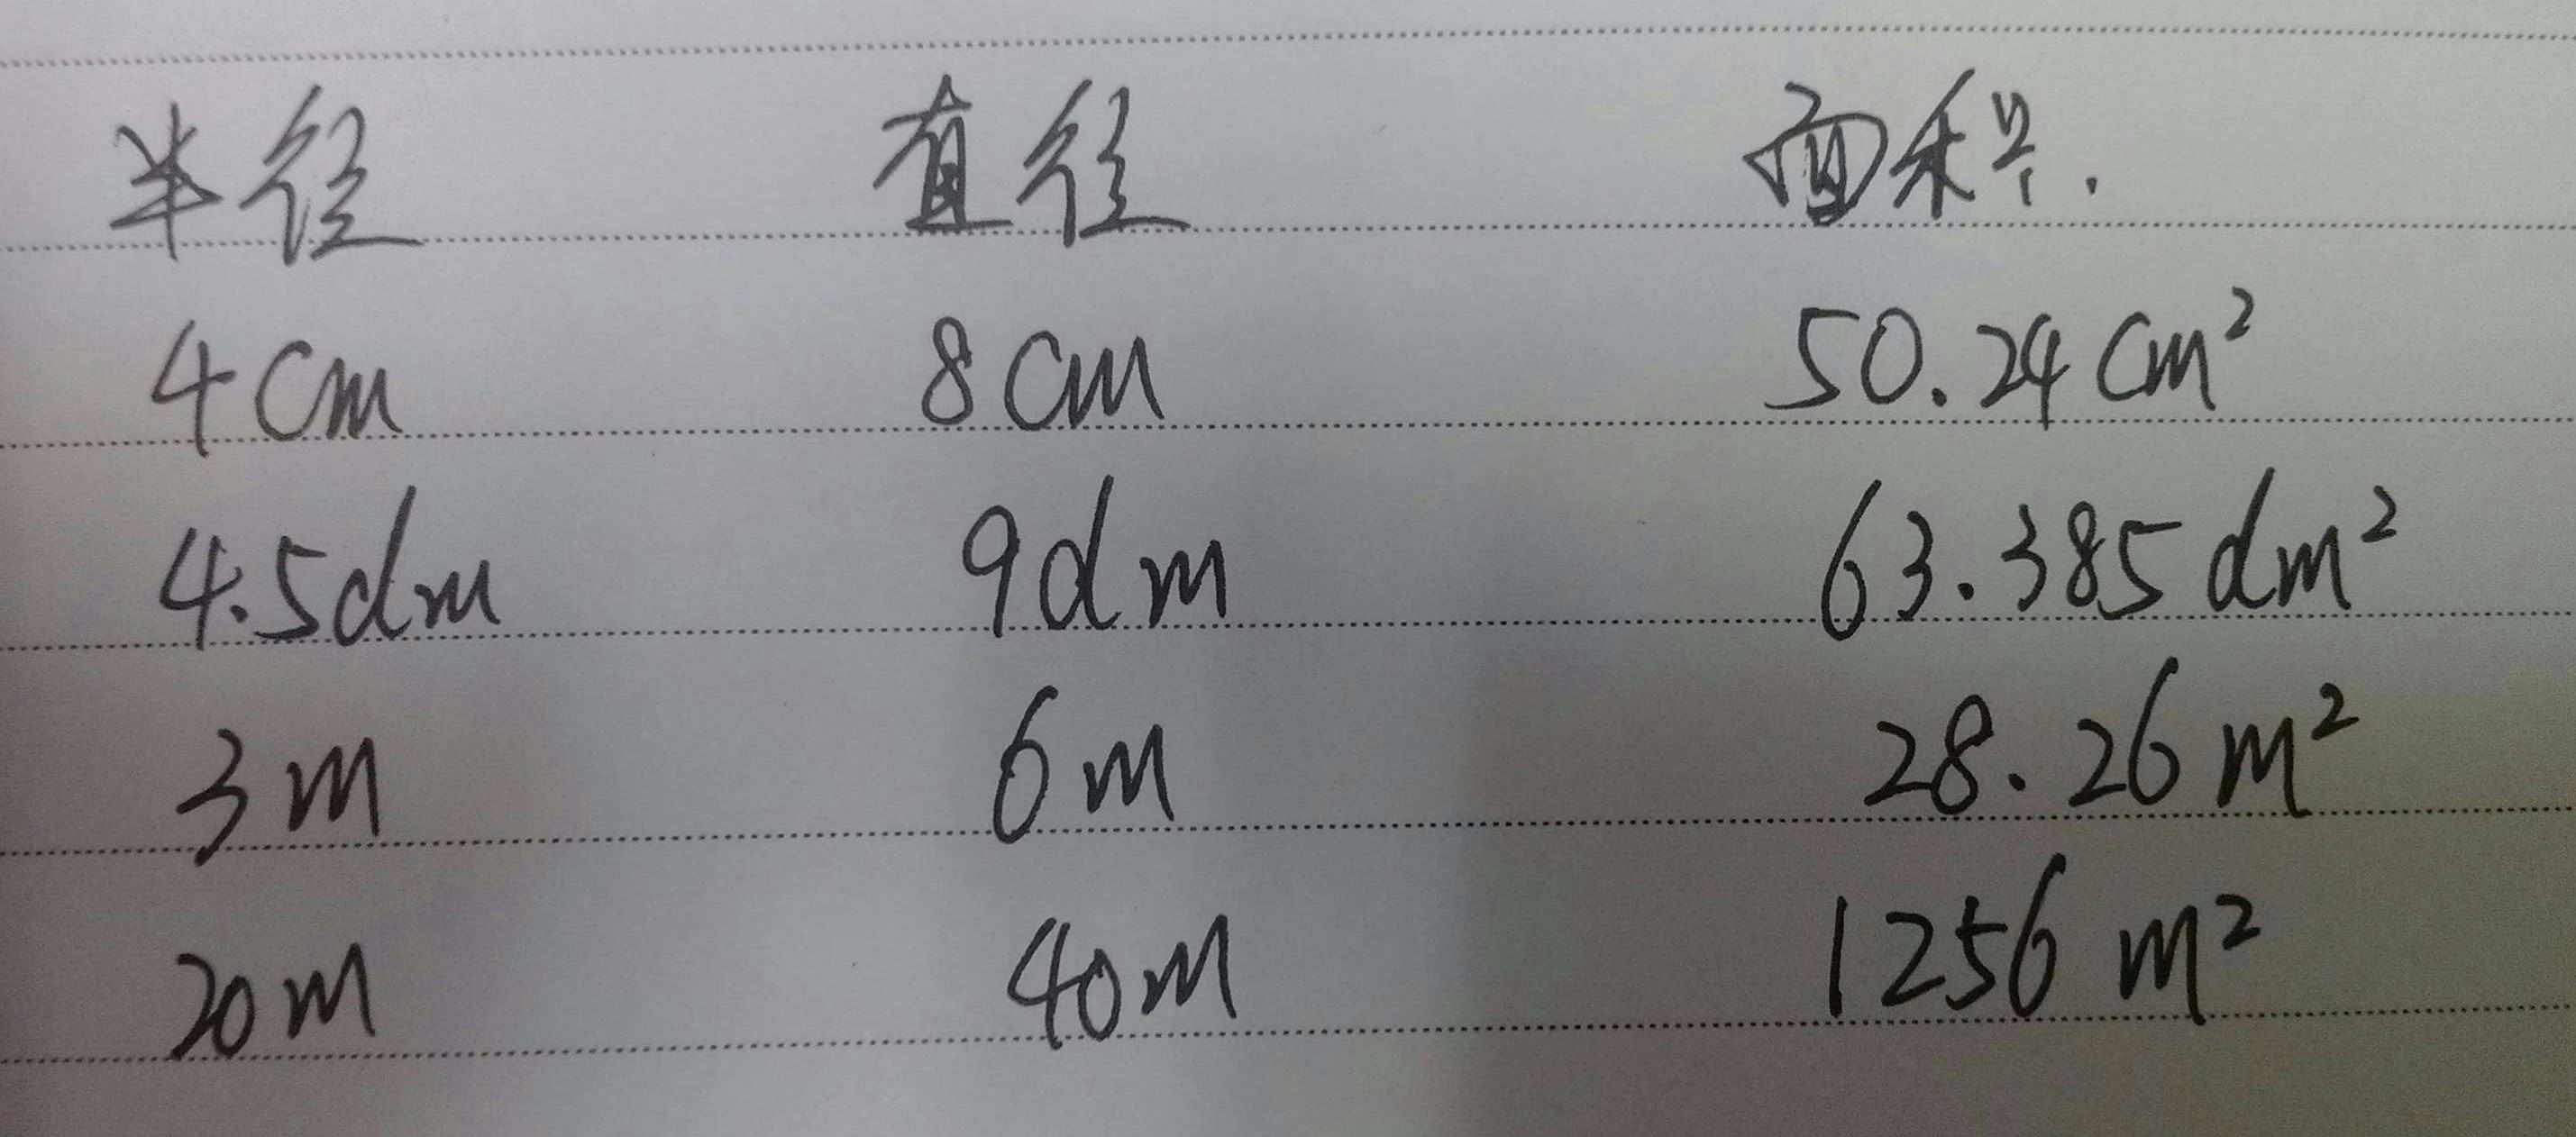 半径 直径 面积.
4cm 8cm 50.24cm²
4.5dm 9dm 63.385dm²
3m 6m 28.26m²
20m 40m 1256m²